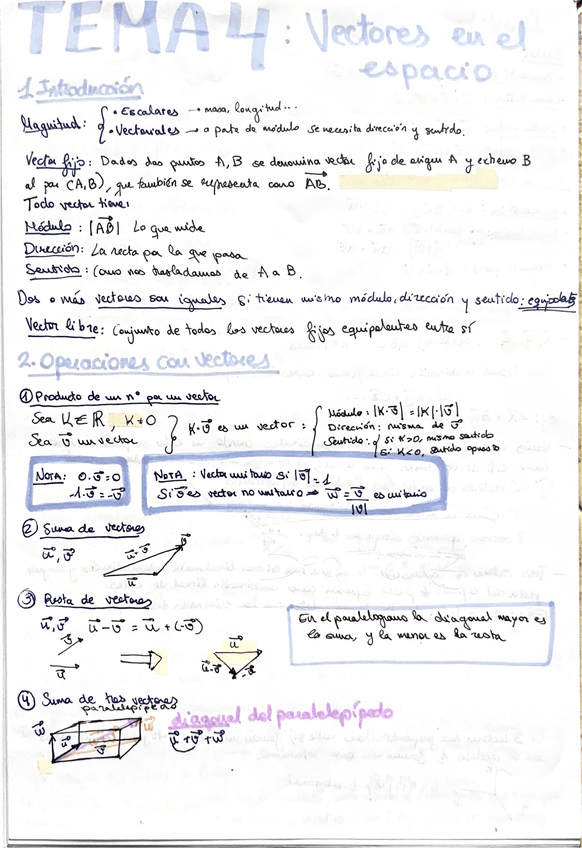 TEMA 4: Vectores en el
espacio
1. Introducción
Magnitud: { • Escalares → masa, longitud...
• Vectoriales → a parte de módulo se necesita dirección y sentido.
Vector fijo: Dados dos puntos A, B se denomina vector fijo de origen A y extremo B
al par (A,B), que también se representa como A͞B⃗.
Todo vector tiene:
Módulo: |AB⃗| Lo que mide
Dirección: La recta por la que pasa
Sentido: Como nos trasladamos de A a B.
Dos o más vectores son iguales si tienen mismo módulo, dirección y sentido: equipolentes
Vector libre: Conjunto de todos los vectores fijos equipolentes entre sí
2. Operaciones con vectores
① Producto de un nº por un vector
Sea K ∈ ℝ, K ≠ 0
Sea v⃗ un vector
} K·v⃗ es un vector: {
Módulo: |K·v⃗| = |K|·|v⃗|
Dirección: misma de v⃗
Sentido: { si K>0, mismo sentido
si K<0, sentido opuesto
NOTA: 0·v⃗ = 0
-1·v⃗ = -v⃗
NOTA: Vector unitario si |v⃗| = 1
Si v⃗ es vector no unitario → w⃗ = v⃗/|v⃗| es unitario
② Suma de vectores
u⃗, v⃗
u⃗·v⃗
v⃗
u⃗
③ Resta de vectores
u⃗, v⃗ u⃗ - v⃗ = u⃗ + (-v⃗)
v⃗
v⃗
u⃗
u⃗·v⃗
-v⃗
En el paralelogramo la diagonal mayor es
la suma, y la menor es la resta
④ Suma de tres vectores
paralelepípedo
w⃗
u⃗
v⃗
w⃗
diagonal del paralelepípedo
u⃗ + v⃗ + w⃗